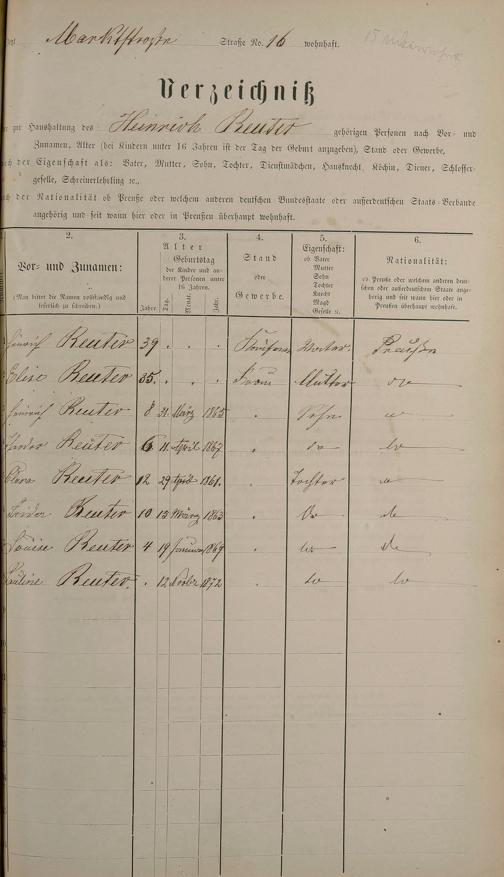 Marktstraße Straße No. 16 wohnhaft.
Verzeichniß
zur Haushaltung des Heinrich Reuter gehörigen Personen nach Vor- und
Zunamen, Alter (bei Kindern unter 16 Jahren ist der Tag der Geburt anzugeben), Stand oder Gewerbe,
nach der Eigenschaft als: Vater, Mutter, Sohn, Tochter, Dienstmädchen, Hausknecht, Köchin, Diener, Schlosser-
geselle, Schreinerlehrling ꝛc.,
nach der Nationalität ob Preuße oder welchem anderen deutschen Bundesstaate oder außerdeutschen Staats-Verbande
angehörig und seit wann hier oder in Preußen überhaupt wohnhaft.
2. 3. 4. 5. 6.
Vor- und Zunamen:
(Man bittet die Namen vollständig und
leserlich zu schreiben.)
Alter
Geburtstag
der Kinder und an-
derer Personen unter
16 Jahren.
Jahre. Tag. Monat. Jahr.
Stand
oder
Gewerbe.
Eigenschaft:
ob Vater
Mutter
Sohn
Tochter
Knecht
Magd
Geselle ꝛc.
Nationalität:
ob Preuße oder welchem anderen deut-
schen oder außerdeutschen Staate ange-
hörig und seit wann hier oder in
Preußen überhaupt wohnhaft.
Heinrich Reuter 39 . . . Vater Preußen
Elise Reuter 35 . . . Frau Mutter do
Heinrich Reuter 8 31 März 1865 . Sohn do
Reuter 6 11 April 1867 . do do
Clara Reuter 12 29 April 1861 . Tochter do
Reuter 10 13 März 1863 . do do
Louise Reuter 4 19 Januar 1869 . do do
Reuter . 12 Novbr 1872 . do do